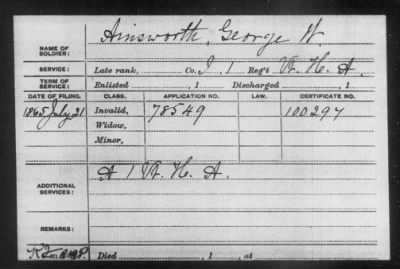 Ainsworth, George W.
NAME OF SOLDIER:
SERVICE: Late rank, Co. I, 1 Reg't Vt. H. A.
TERM OF SERVICE: Enlisted , 1 Discharged , 1
DATE OF FILING. CLASS. APPLICATION NO. LAW. CERTIFICATE NO.
1865 July 21 Invalid, 78549 100297
Widow,
Minor,
ADDITIONAL SERVICES: A 1 Vt. H. A.
REMARKS:
Died , 1 , at